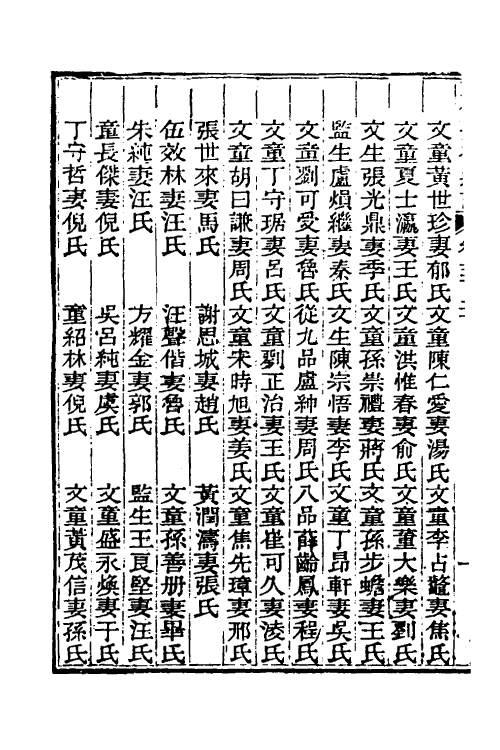 文童黃世珍妻郁氏文童陳仁愛妻湯氏文童李占鼇妻焦氏
文童夏士瀛妻王氏文童洪惟春妻俞氏文童董大樂妻劉氏
文生張光鼎妻季氏文童孫崇禮妻蔣氏文童孫步蟾妻王氏
監生盧熉繼妻秦氏文生陳宗悟妻李氏文童丁昂軒妻吳氏
文童劉可愛妻魯氏從九品盧紳妻周氏八品薛齡鳳妻程氏
文童丁守琚妻呂氏文童劉正治妻王氏文童崔可久妻淩氏
文童胡曰謙妻周氏文童宋時旭妻姜氏文童焦先璋妻邢氏
張世來妻馬氏 謝思城妻趙氏 黃潤濤妻張氏
伍效林妻汪氏 汪聲偕妻魯氏 文童孫善册妻畢氏
朱純妻汪氏 方耀金妻郭氏 監生王良堅妻汪氏
童長傑妻倪氏 吳呂純妻虞氏 文童盛永煥妻干氏
丁守哲妻倪氏 童紹林妻倪氏 文童黃茂信妻孫氏